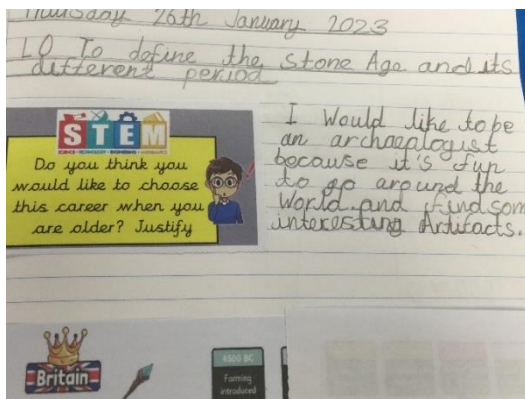 Thursday 26th January 2023
LO To define the Stone Age and its
different period
STEM
SCIENCE · TECHNOLOGY · ENGINEERING · MATHEMATICS
Do you think you
would like to choose
this career when you
are older? Justify
I Would like to be
an archaeologist
because it's fun
to go around the
World and find som
interesting Artifacts.
Britain
4500 BC
Farming
introduced